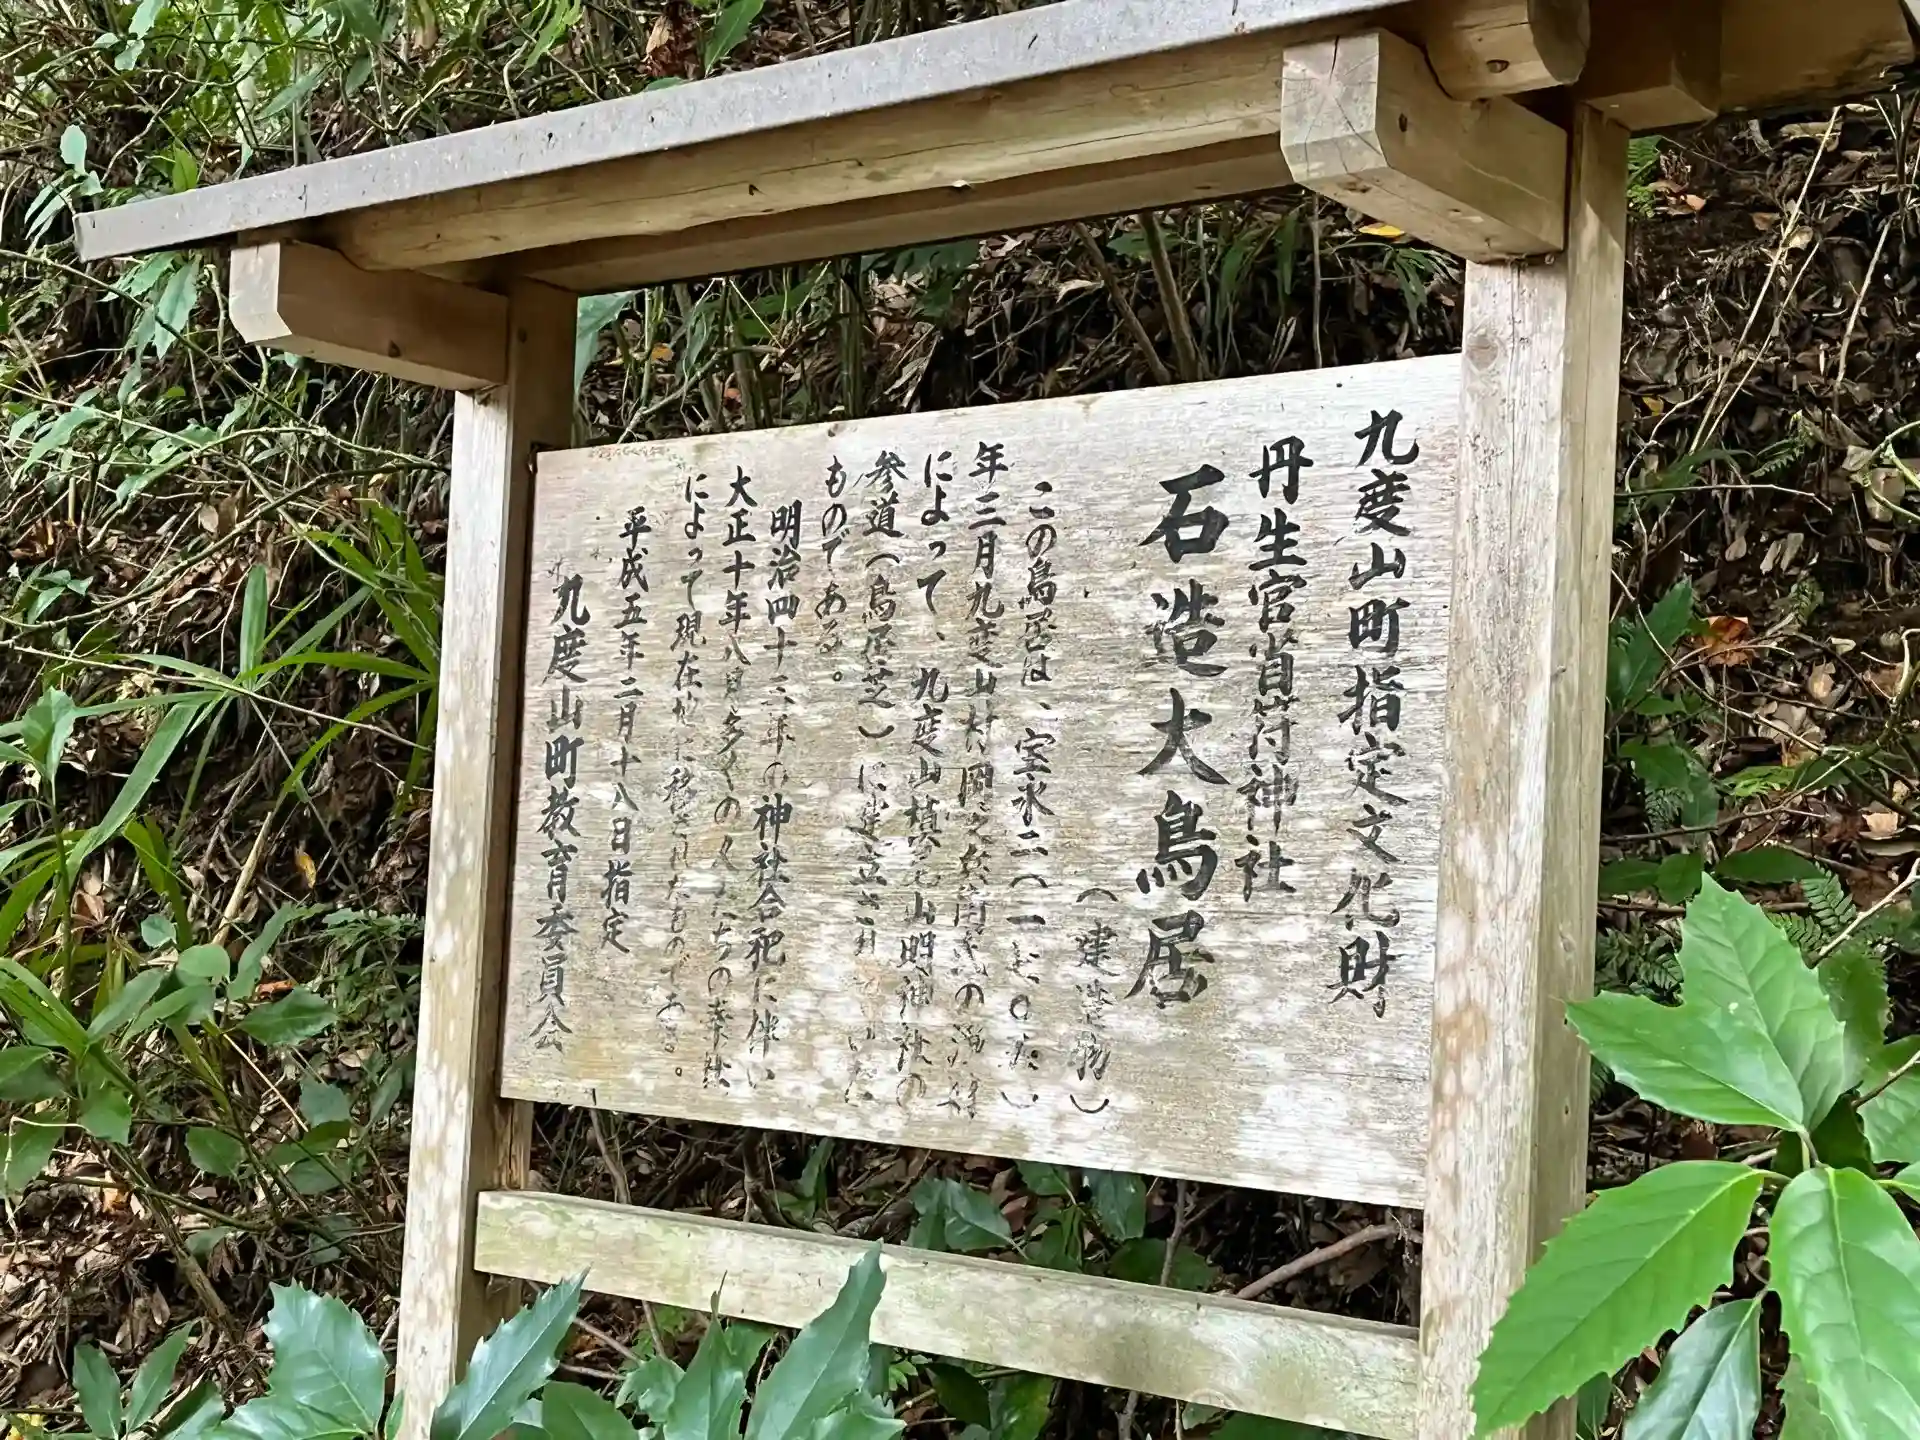 九度山町指定文化財
丹生官省符神社
石造大鳥居
（建造物）
この鳥居は、宝永二（一七〇五）
年三月九度山村岡之
によって、九度山槙尾山明神社の
参道（鳥居芝）に建立されていた
ものである。
明治四十三年の神社合祀に伴い
大正十年八月多くの人たちの奉仕
によって現在地に移されたものである。
平成五年二月十八日指定
九度山町教育委員会